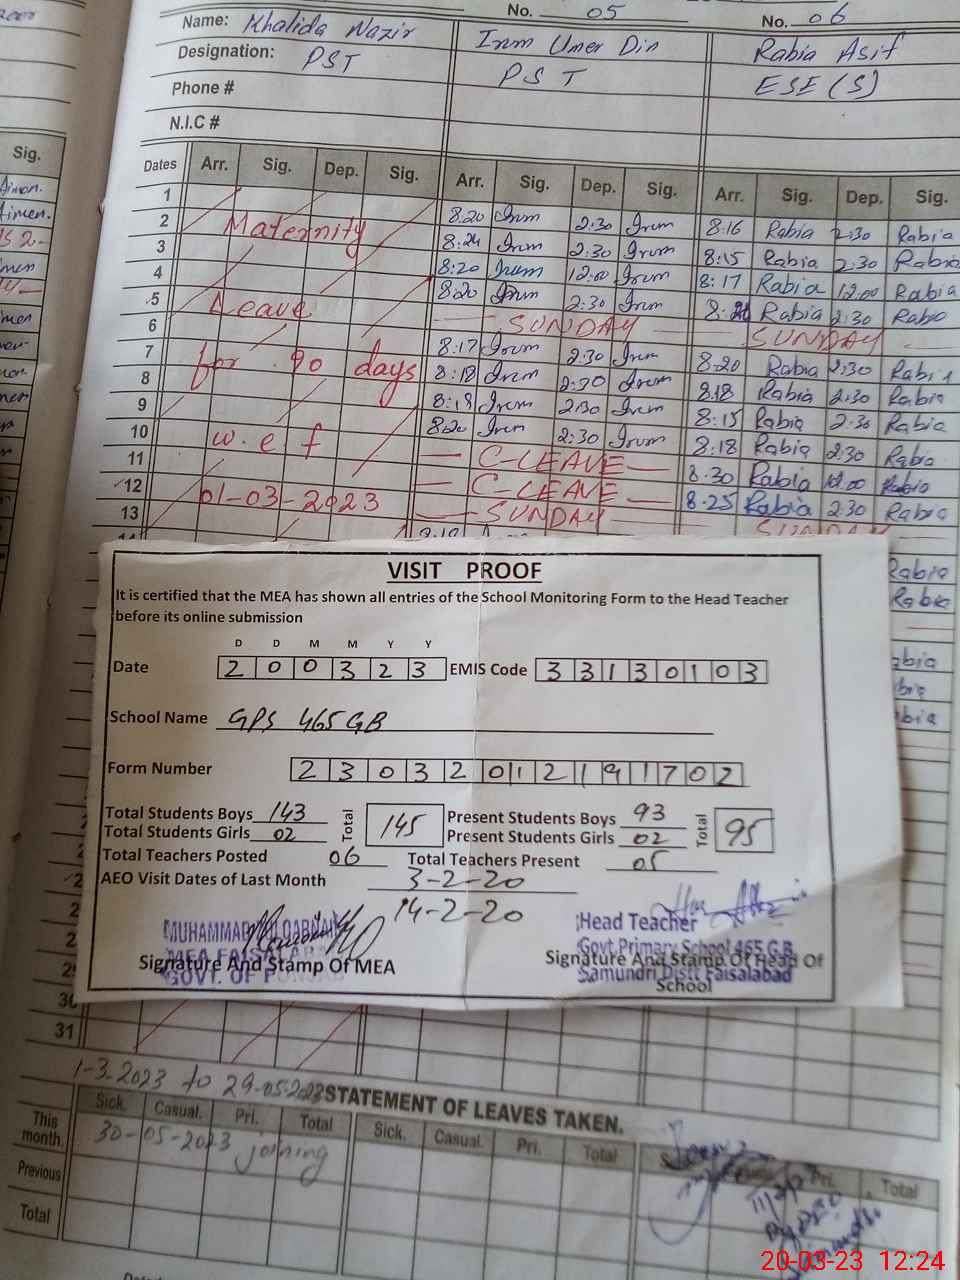 No. 05 No. 06
Name: Khalida Nazir Irum Umer Din Rabia Asif
Designation: PST PST ESE (S)
Phone #
N.I.C #
Sig. Dates Arr. Sig. Dep. Sig. Arr. Sig. Dep. Sig. Arr. Sig. Dep. Sig.
1 8:20 Irum 2:30 Irum 8:16 Rabia 2:30 Rabia
2 Maternity 8:24 Irum 2:30 Irum 8:15 Rabia 2:30 Rabia
3 8:20 Irum 12:00 Irum 8:17 Rabia 12:00 Rabia
4 8:20 Irum 2:30 Irum Rabia 2:30 Rabia
5 Leave SUNDAY SUNDAY
6 8:17 Irum 2:30 Irum 8:20 Rabia 2:30 Rabia
7 for 90 days 8:18 Irum 2:30 Irum 8:18 Rabia 2:30 Rabia
8 8:18 Irum 2:30 Irum 8:15 Rabia 2:30 Rabia
9 8:20 Irum 2:30 Irum 8:18 Rabia 2:30 Rabia
10 w.e.f C-LEAVE 8:30 Rabia 12:00 Rabia
11 C-LEAVE 8:25 Rabia 2:30 Rabia
12 01-03-2023 SUNDAY SUNDAY
13
Rabia
Rabia
VISIT PROOF
It is certified that the MEA has shown all entries of the School Monitoring Form to the Head Teacher
before its online submission
D D M M Y Y
Date 2 0 0 3 2 3 EMIS Code 3 3 1 3 0 1 0 3
School Name GPS 465 GB
Form Number 2 3 0 3 2 0 1 2 1 9 1 7 0 2
Total Students Boys 143 Total 145 Present Students Boys 93 Total 95
Total Students Girls 02 Present Students Girls 02
Total Teachers Posted 06 Total Teachers Present 05
AEO Visit Dates of Last Month 3-2-20
14-2-20
MUHAMMAD
MEA FAISALABAD
GOVT. OF PUNJAB
Signature And Stamp Of MEA
Head Teacher
Govt. Primary School 465 G.B
Samundri Distt Faisalabad
Signature And Stamp Of Head Of
School
30
31
1-3-2023 to 29-05-2023
STATEMENT OF LEAVES TAKEN.
Sick. Casual. Pri. Total Sick. Casual. Pri. Total Pri. Total
This month.
30-05-2023 joining
Previous
Total
20-03-23 12:24